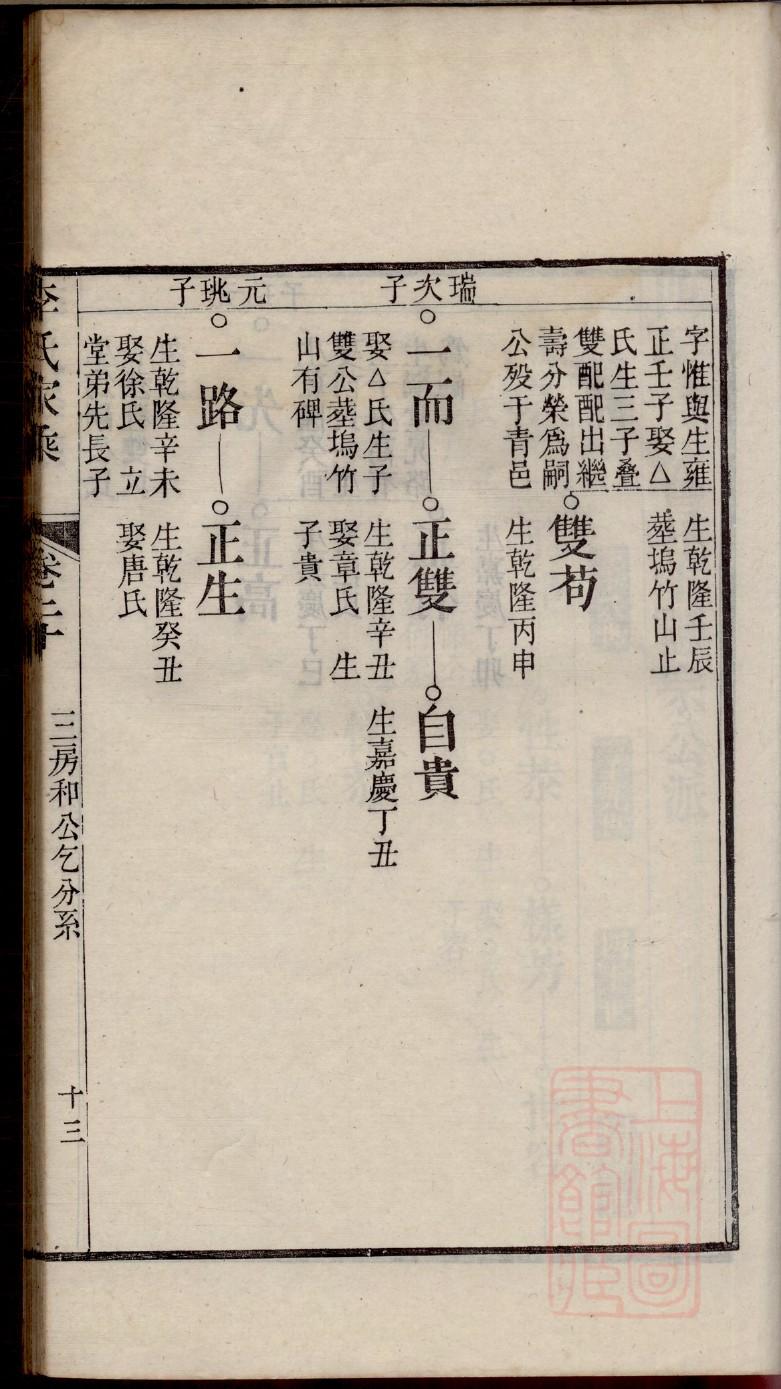 字惟與生雍
正壬子娶△
氏生三子叠
雙配配出繼
壽分榮爲嗣
公殁于青邑
生乾隆壬辰
葬塢竹山止
雙苟
生乾隆丙申
瑞次子
一而
娶△氏生子
雙公葬塢竹
山有碑
正雙
生乾隆辛丑
娶章氏 生
子貴
自貴
生嘉慶丁丑
元珧子
一路
生乾隆辛未
娶徐氏 立
堂弟先長子
正生
生乾隆癸丑
娶唐氏
李氏家乘
卷二十
三房和公乞分系
十三
上海圖
書館藏